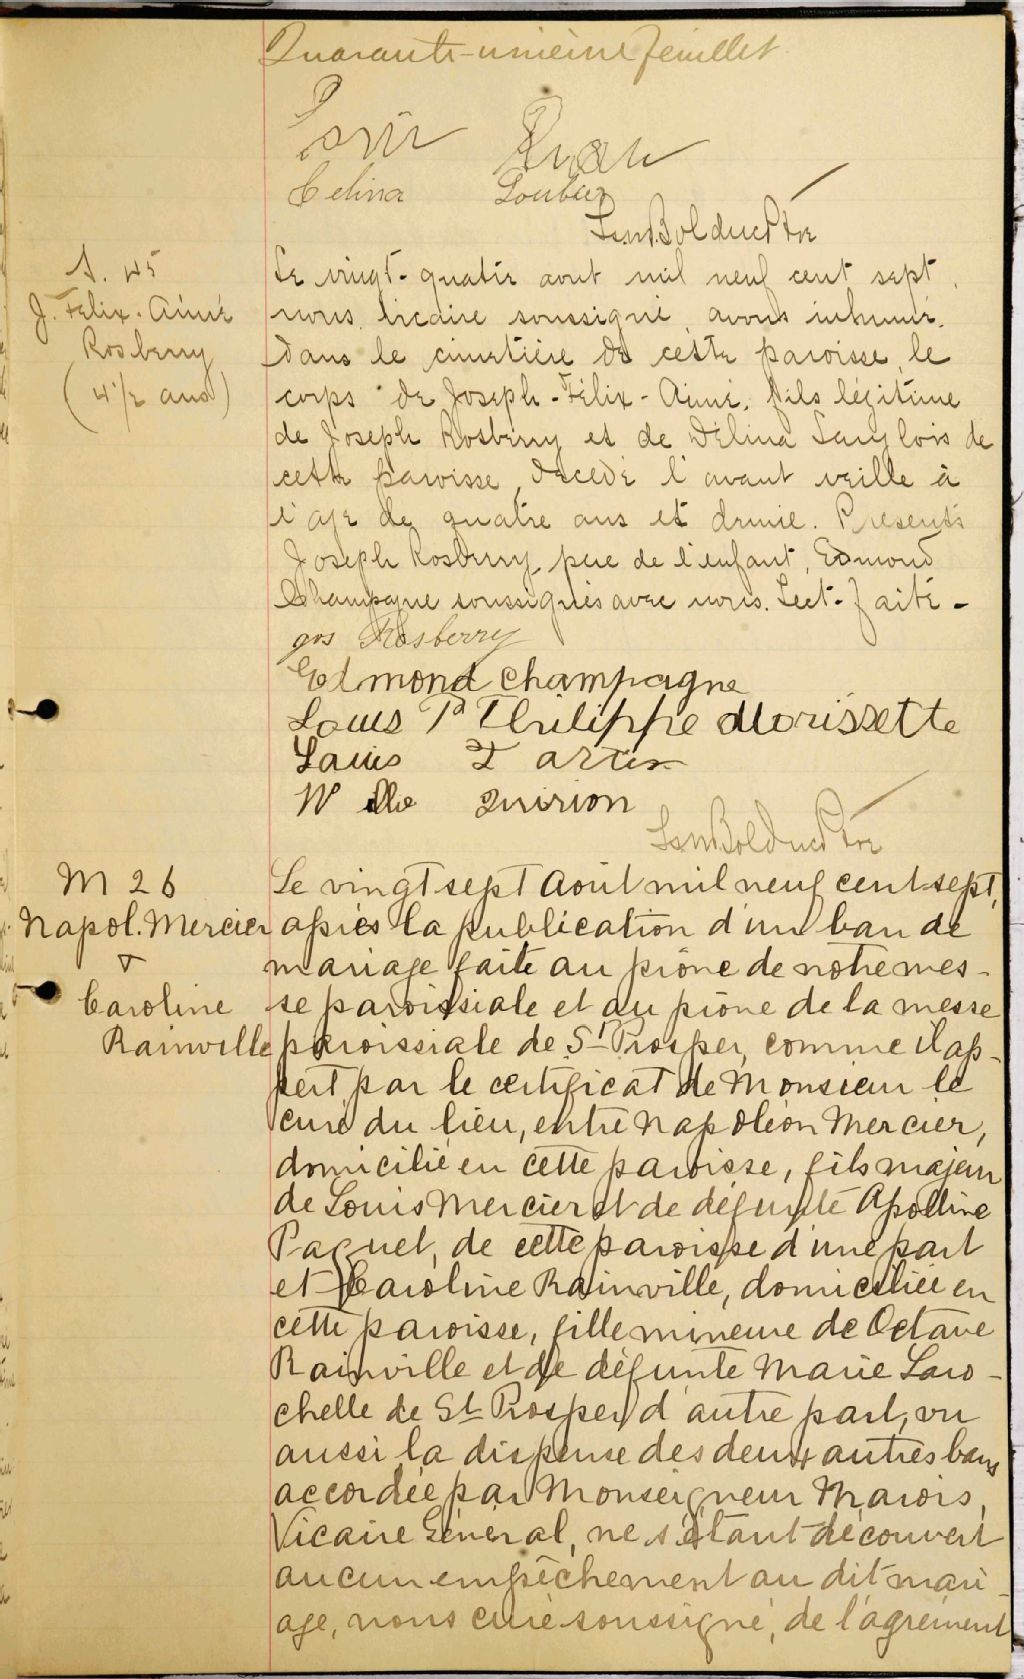 Quarante-unième feuillet
Celina Loubier
Bolduc Ptre
S. 45
J. Felix-Aimé
Rosberry
(4 1/2 ans)
Le vingt-quatre aout mil neuf cent sept,
nous, vicaire soussigné, avons inhumé,
dans le cimetière de cette paroisse, le
corps de Joseph-Félix-Aimé, fils légitime
de Joseph Rosberry et de Délina Langlois de
cette paroisse, décédé l'avant veille à
l'age de quatre ans et demie. Présents
Joseph Rosberry, père de l'enfant, Edmond
Champagne soussignés avec nous. Lect. faite -
jos Rosberry
Edmond Champagne
Louis Philippe Morissette
Louis
Quirion
Bolduc Ptre
M 26
Napol. Mercier
&
Caroline
Rainville
Le vingt sept Août mil neuf cent sept,
après la publication d'un ban de
mariage faite au prône de notre mes-
se paroissiale et au prône de la messe
paroissiale de St Prosper, comme il ap-
pert par le certificat de Monsieur le
curé du lieu, entre Napoléon Mercier,
domicilié en cette paroisse, fils majeur
de Louis Mercier et de défunte Apolline
Paquet, de cette paroisse d'une part
et Caroline Rainville, domiciliée en
cette paroisse, fille mineure de Octave
Rainville et de défunte Marie Laro-
chelle de St Prosper, d'autre part, vu
aussi la dispense des deux autres bans
accordée par Monseigneur Marois,
Vicaire Général, ne s'étant découvert
aucun empêchement au dit mari-
age, nous curé soussigné, de l'agrément